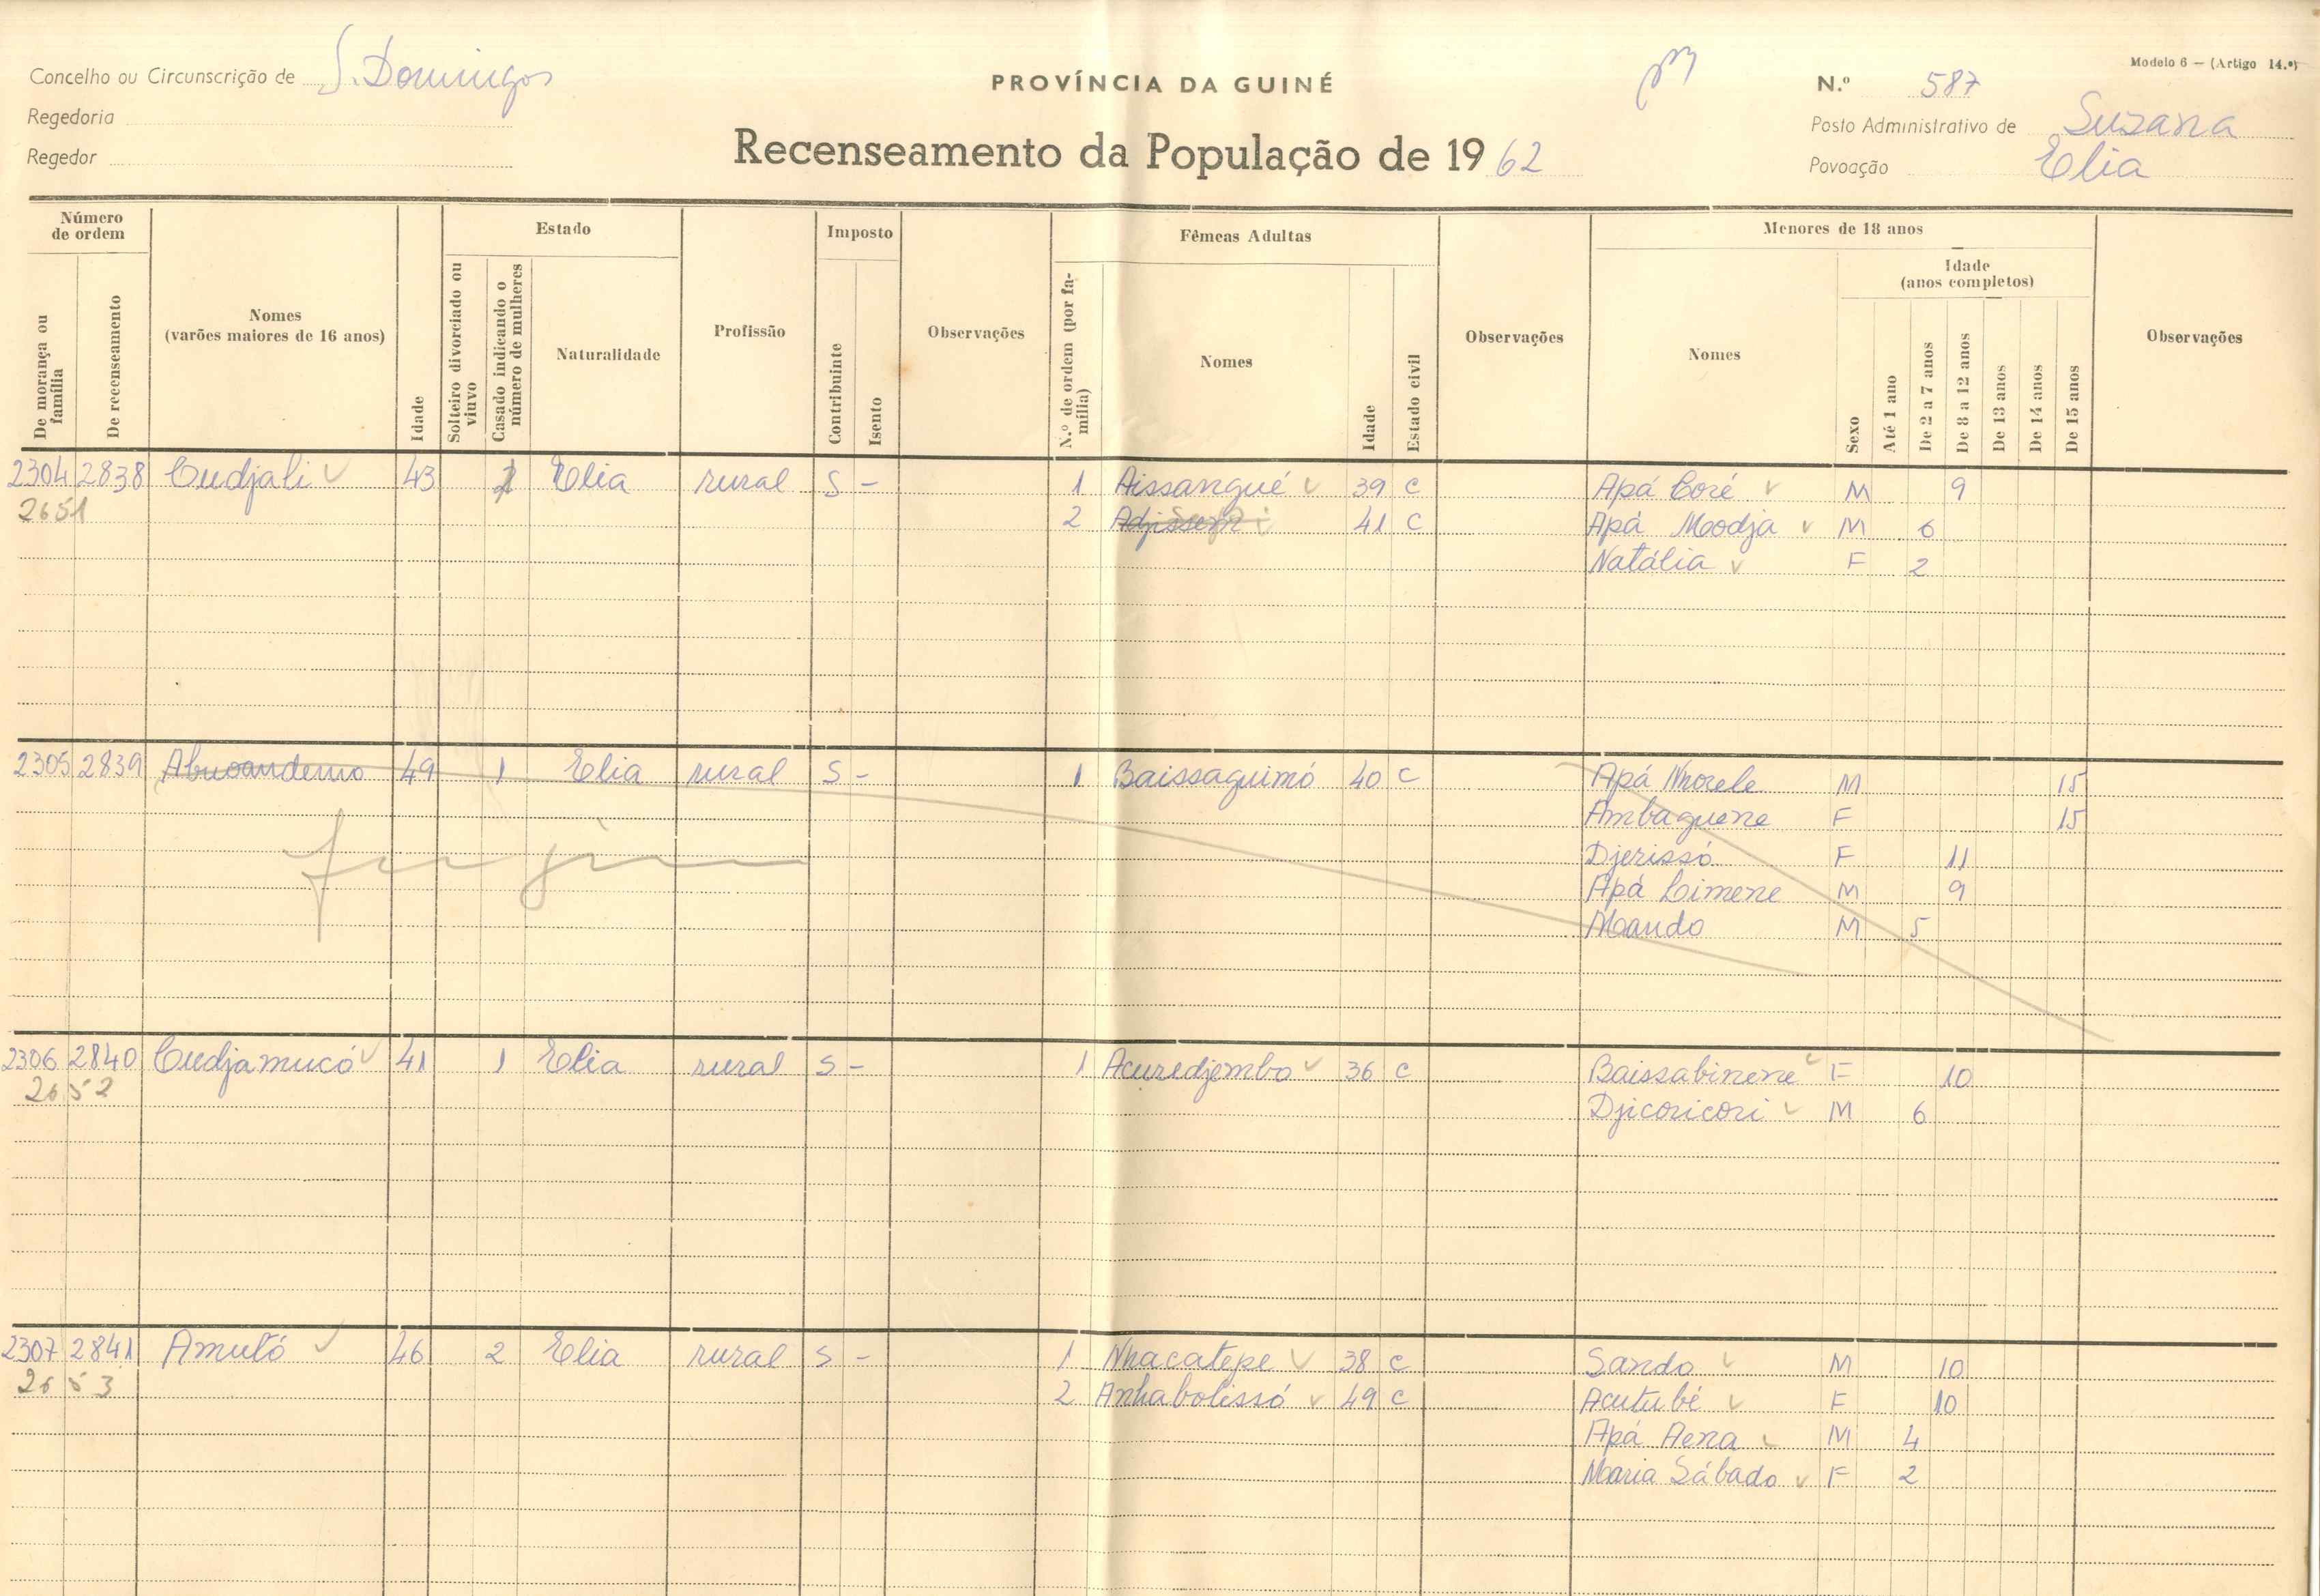 Modelo 6 — (Artigo 14.º)
Concelho ou Circunscrição de S. Domingos
PROVÍNCIA DA GUINÉ
N.º 587
Regedoria
Posto Administrativo de Suzana
Regedor
Recenseamento da População de 1962
Povoação Elia
Número de ordem
De morança ou família
De recenseamento
Nomes (varões maiores de 16 anos)
Idade
Estado
Solteiro divorciado ou viuvo
Casado indicando o número de mulheres
Naturalidade
Profissão
Imposto
Contribuinte
Isento
Observações
Fêmeas Adultas
N.º de ordem (por família)
Nomes
Idade
Estado civil
Observações
Menores de 18 anos
Nomes
Sexo
Idade (anos completos)
Até 1 ano
De 2 a 7 anos
De 8 a 12 anos
De 13 anos
De 14 anos
De 15 anos
Observações
2304 2838 Cudjali 43 Elia rural S - 1 Aissangué 39 C Apá Coré M 9
2651 2 41 C Apá Modja M 6
Natália F 2
2305 2839 Abuoandemo 49 1 Elia rural S - 1 Baissaguimó 40 C Apá Nhorele M 15
Ambaguene F 15
Djerissó F 11
Apá Limene M 9
Mando M 5
2306 2840 Cudjamucó 41 1 Elia rural S - 1 Acuredjembo 36 C Baissabinene F 10
2652 Djicoricori M 6
2307 2841 Amutó 46 2 Elia rural S - 1 Nhacatepe 38 C Sando M 10
2653 2 Anhabolissó 49 C Acutubé F 10
Apá Aena M 4
Maria Sábado F 2